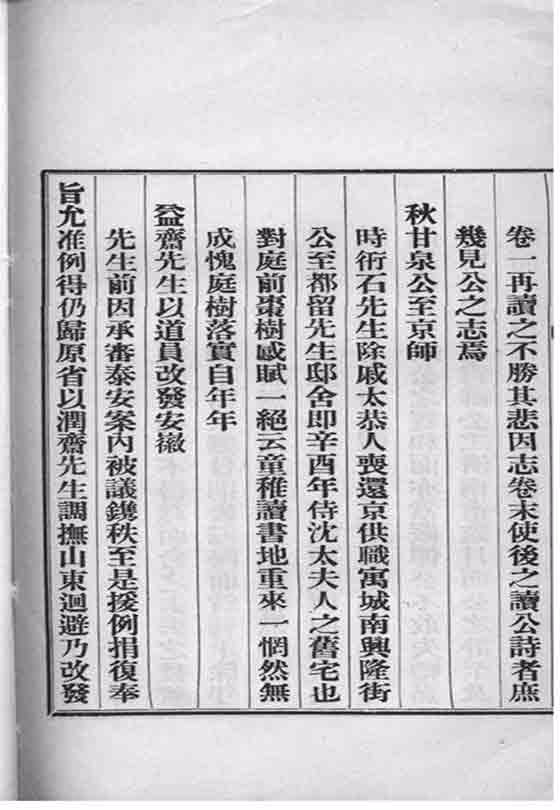 卷一再讀之不勝其悲因志卷末使後之讀公詩者庶
幾見公之志焉
秋甘泉公至京師
時衎石先生除戚太恭人喪還京供職寓城南興隆街
公至都留先生邸舍即辛酉年侍沈太夫人之舊宅也
對庭前棗樹感賦一絕云童稚讀書地重來一惘然無
成愧庭樹落實自年年
益齋先生以道員改發安徽
先生前因承審泰安案內被議鐫秩至是援例捐復奉
旨允准例得仍歸原省以潤齋先生調撫山東迴避乃改發